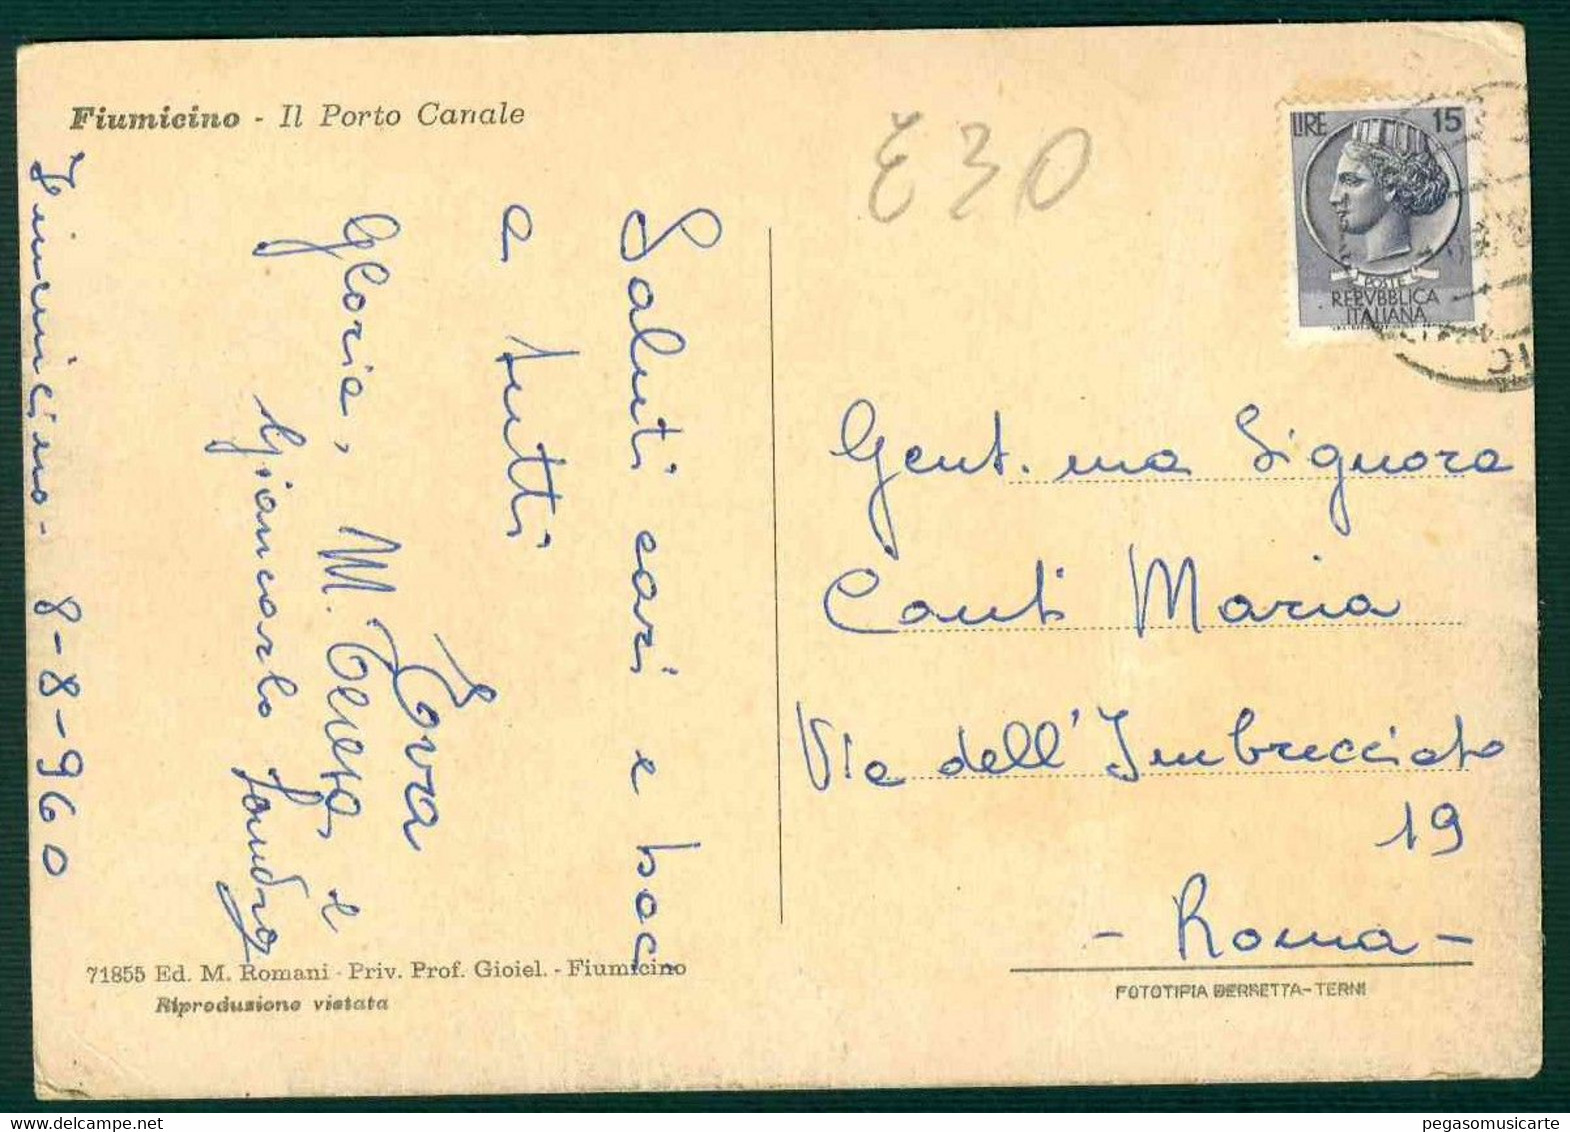 Fiumicino - Il Porto Canale
€ 30
LIRE 15
POSTE
REPVBBLICA
ITALIANA
Saluti cari e bac
a tutti
Gloria, M. Teresa, e
Giancarlo Sandro
Fiumicino - 8-8-960
Gent.ma Signora
Conti Maria
Via dell'Imbrecciato
19
- Roma -
71855 Ed. M. Romani - Priv. Prof. Gioiel. - Fiumicino
Riproduzione vietata
FOTOTIPIA BERRETTA-TERNI
pegasomusicarte.com